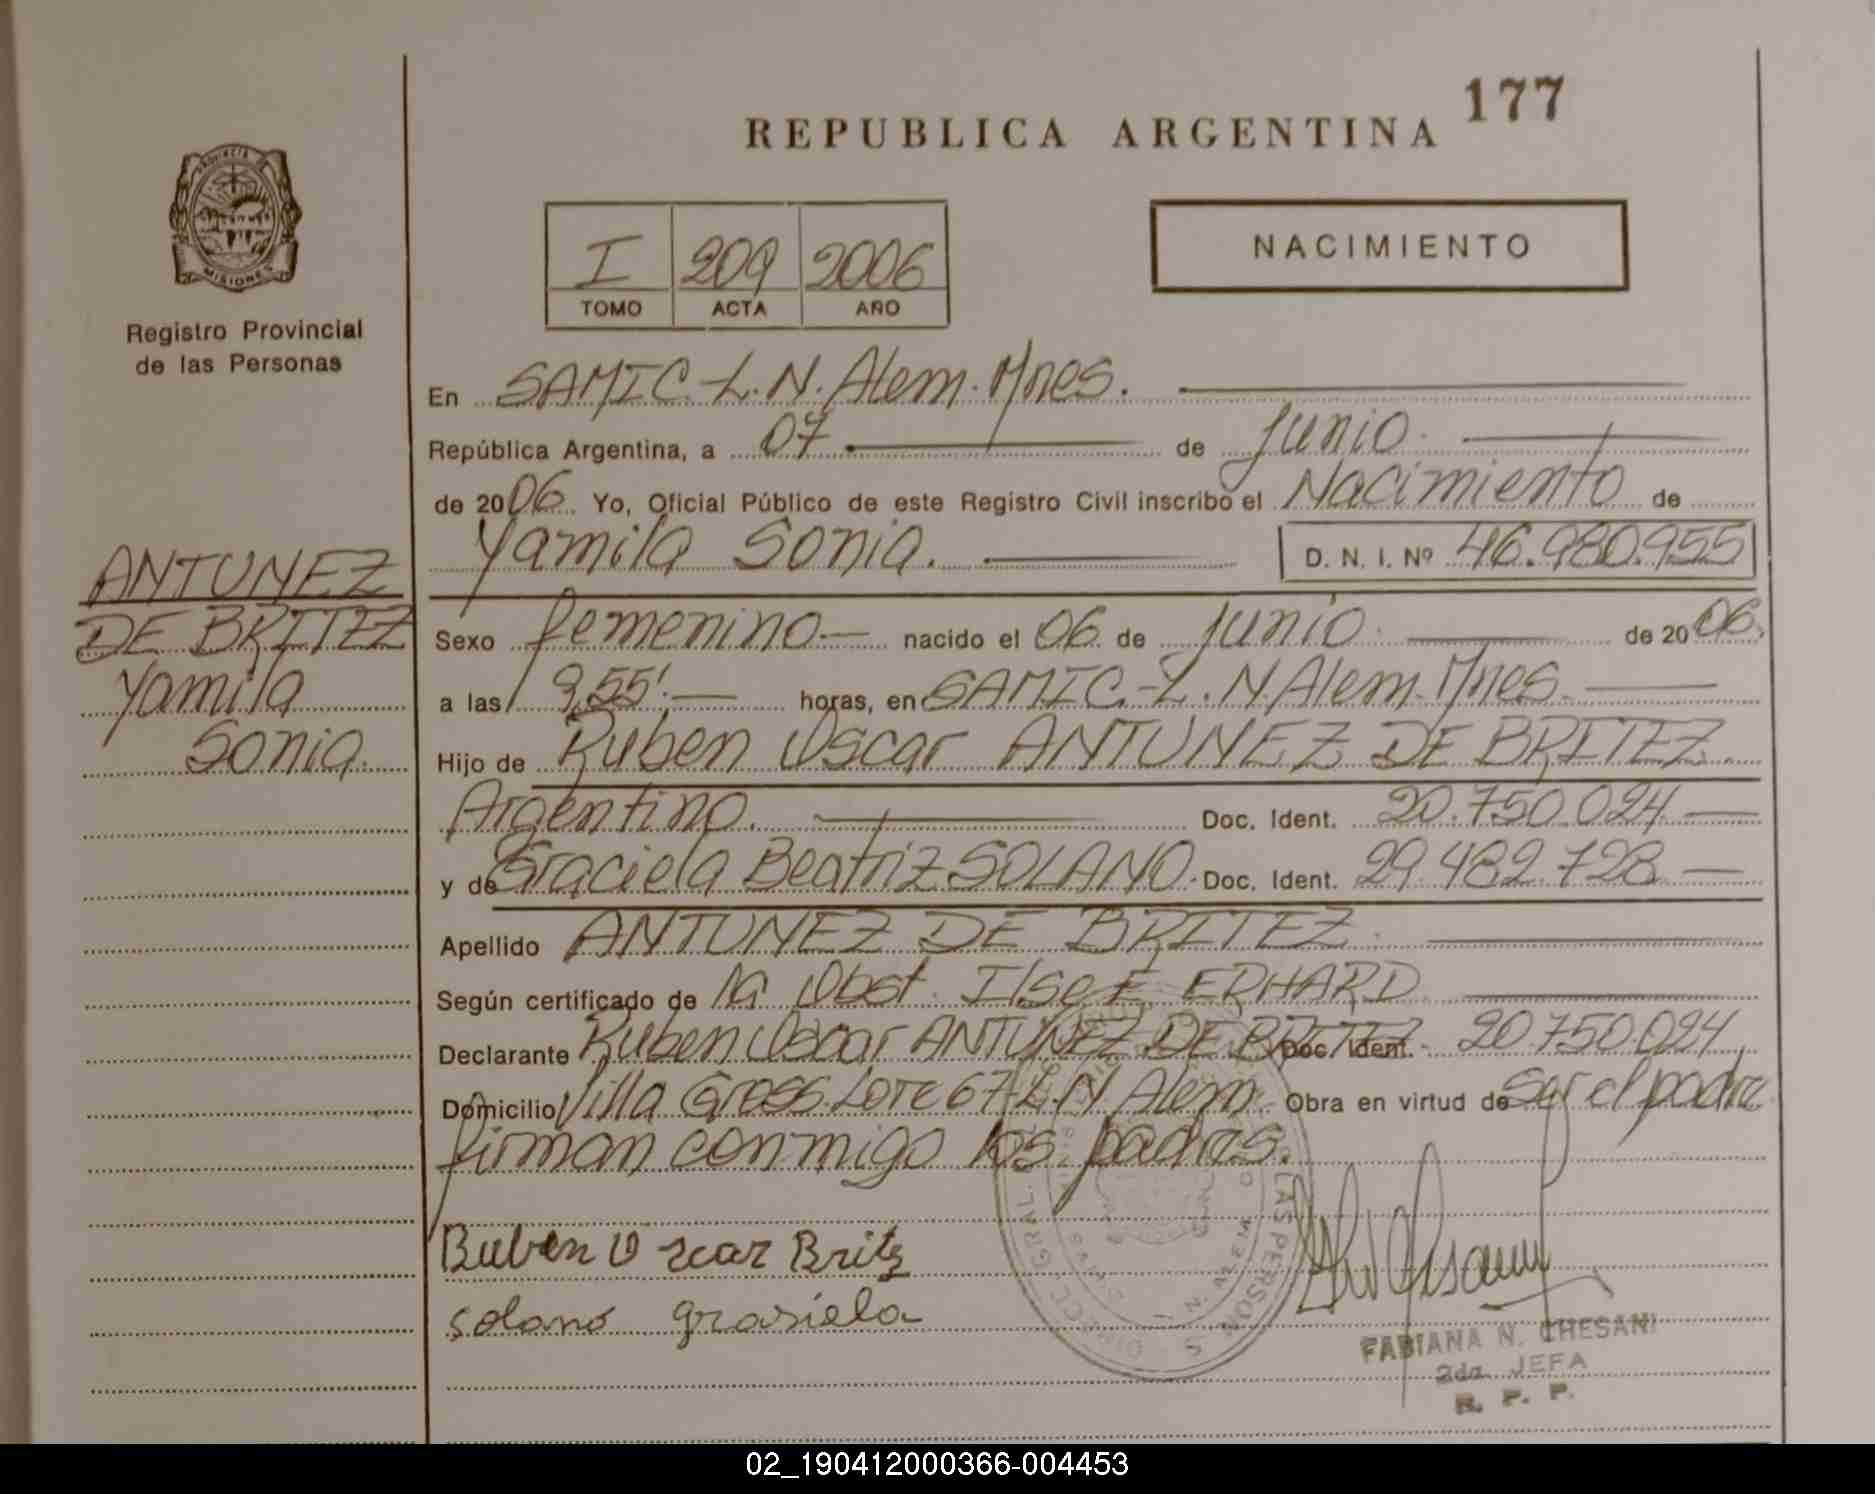 REPUBLICA ARGENTINA 177
PROVINCIA DE MISIONES
Registro Provincial
de las Personas
I 209 2006
TOMO ACTA AÑO
NACIMIENTO
En SAMIC-L.N.Alem.Mnes.
República Argentina, a 07 de Junio.
de 2006. Yo, Oficial Público de este Registro Civil inscribo el Nacimiento de
Yamila Sonia. D. N. I. Nº 46.980.955
ANTUNEZ
DE BRITEZ
Yamila
Sonia.
Sexo femenino nacido el 06 de Junio de 2006.
a las 9,55'. horas, en SAMIC.-L.N.Alem.Mnes.
Hijo de Ruben Oscar ANTUNEZ DE BRITEZ.
Argentino. Doc. Ident. 20.750.024
y de Graciela Beatriz SOLANO. Doc. Ident. 29.482.728
Apellido ANTUNEZ DE BRITEZ.
Según certificado de la Obst. Ilse E. ERHARD
Declarante Ruben Oscar ANTUNEZ DE BRITEZ Doc. Ident. 20.750.024
Domicilio Villa Gross Lote 67-L.N Alem Obra en virtud de Ser el padre
firman conmigo los padres.
Ruben Oscar Britz
solano grasiela
DIRECC. GRAL. LAS PERSON S
FABIANA N. CHESANI
2da. JEFA
R. P. P.
02_190412000366-004453